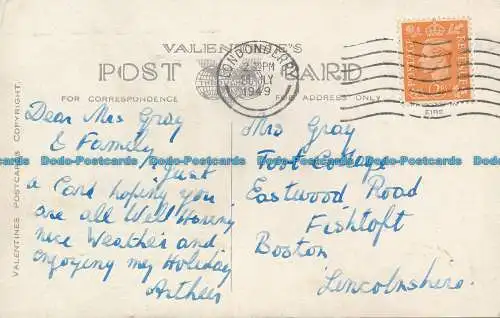 VALENTINE'S
POST CARD
FOR CORRESPONDENCE
FOR ADDRESS ONLY
VALENTINES POSTCARDS COPYRIGHT.
LONDONDERRY
PM
JLY
1949
EIRE
Dear Mrs Gray
& Family
Just
a Card hoping you
are all Well Having
nice Weather and
enjoying my Holiday
Mrs Gray
Eastwood Road
Fishtoft
Boston
Lincolnshire.
Dodo-Postcards Dodo-Postcards Dodo-Postcards Dodo-Postcards